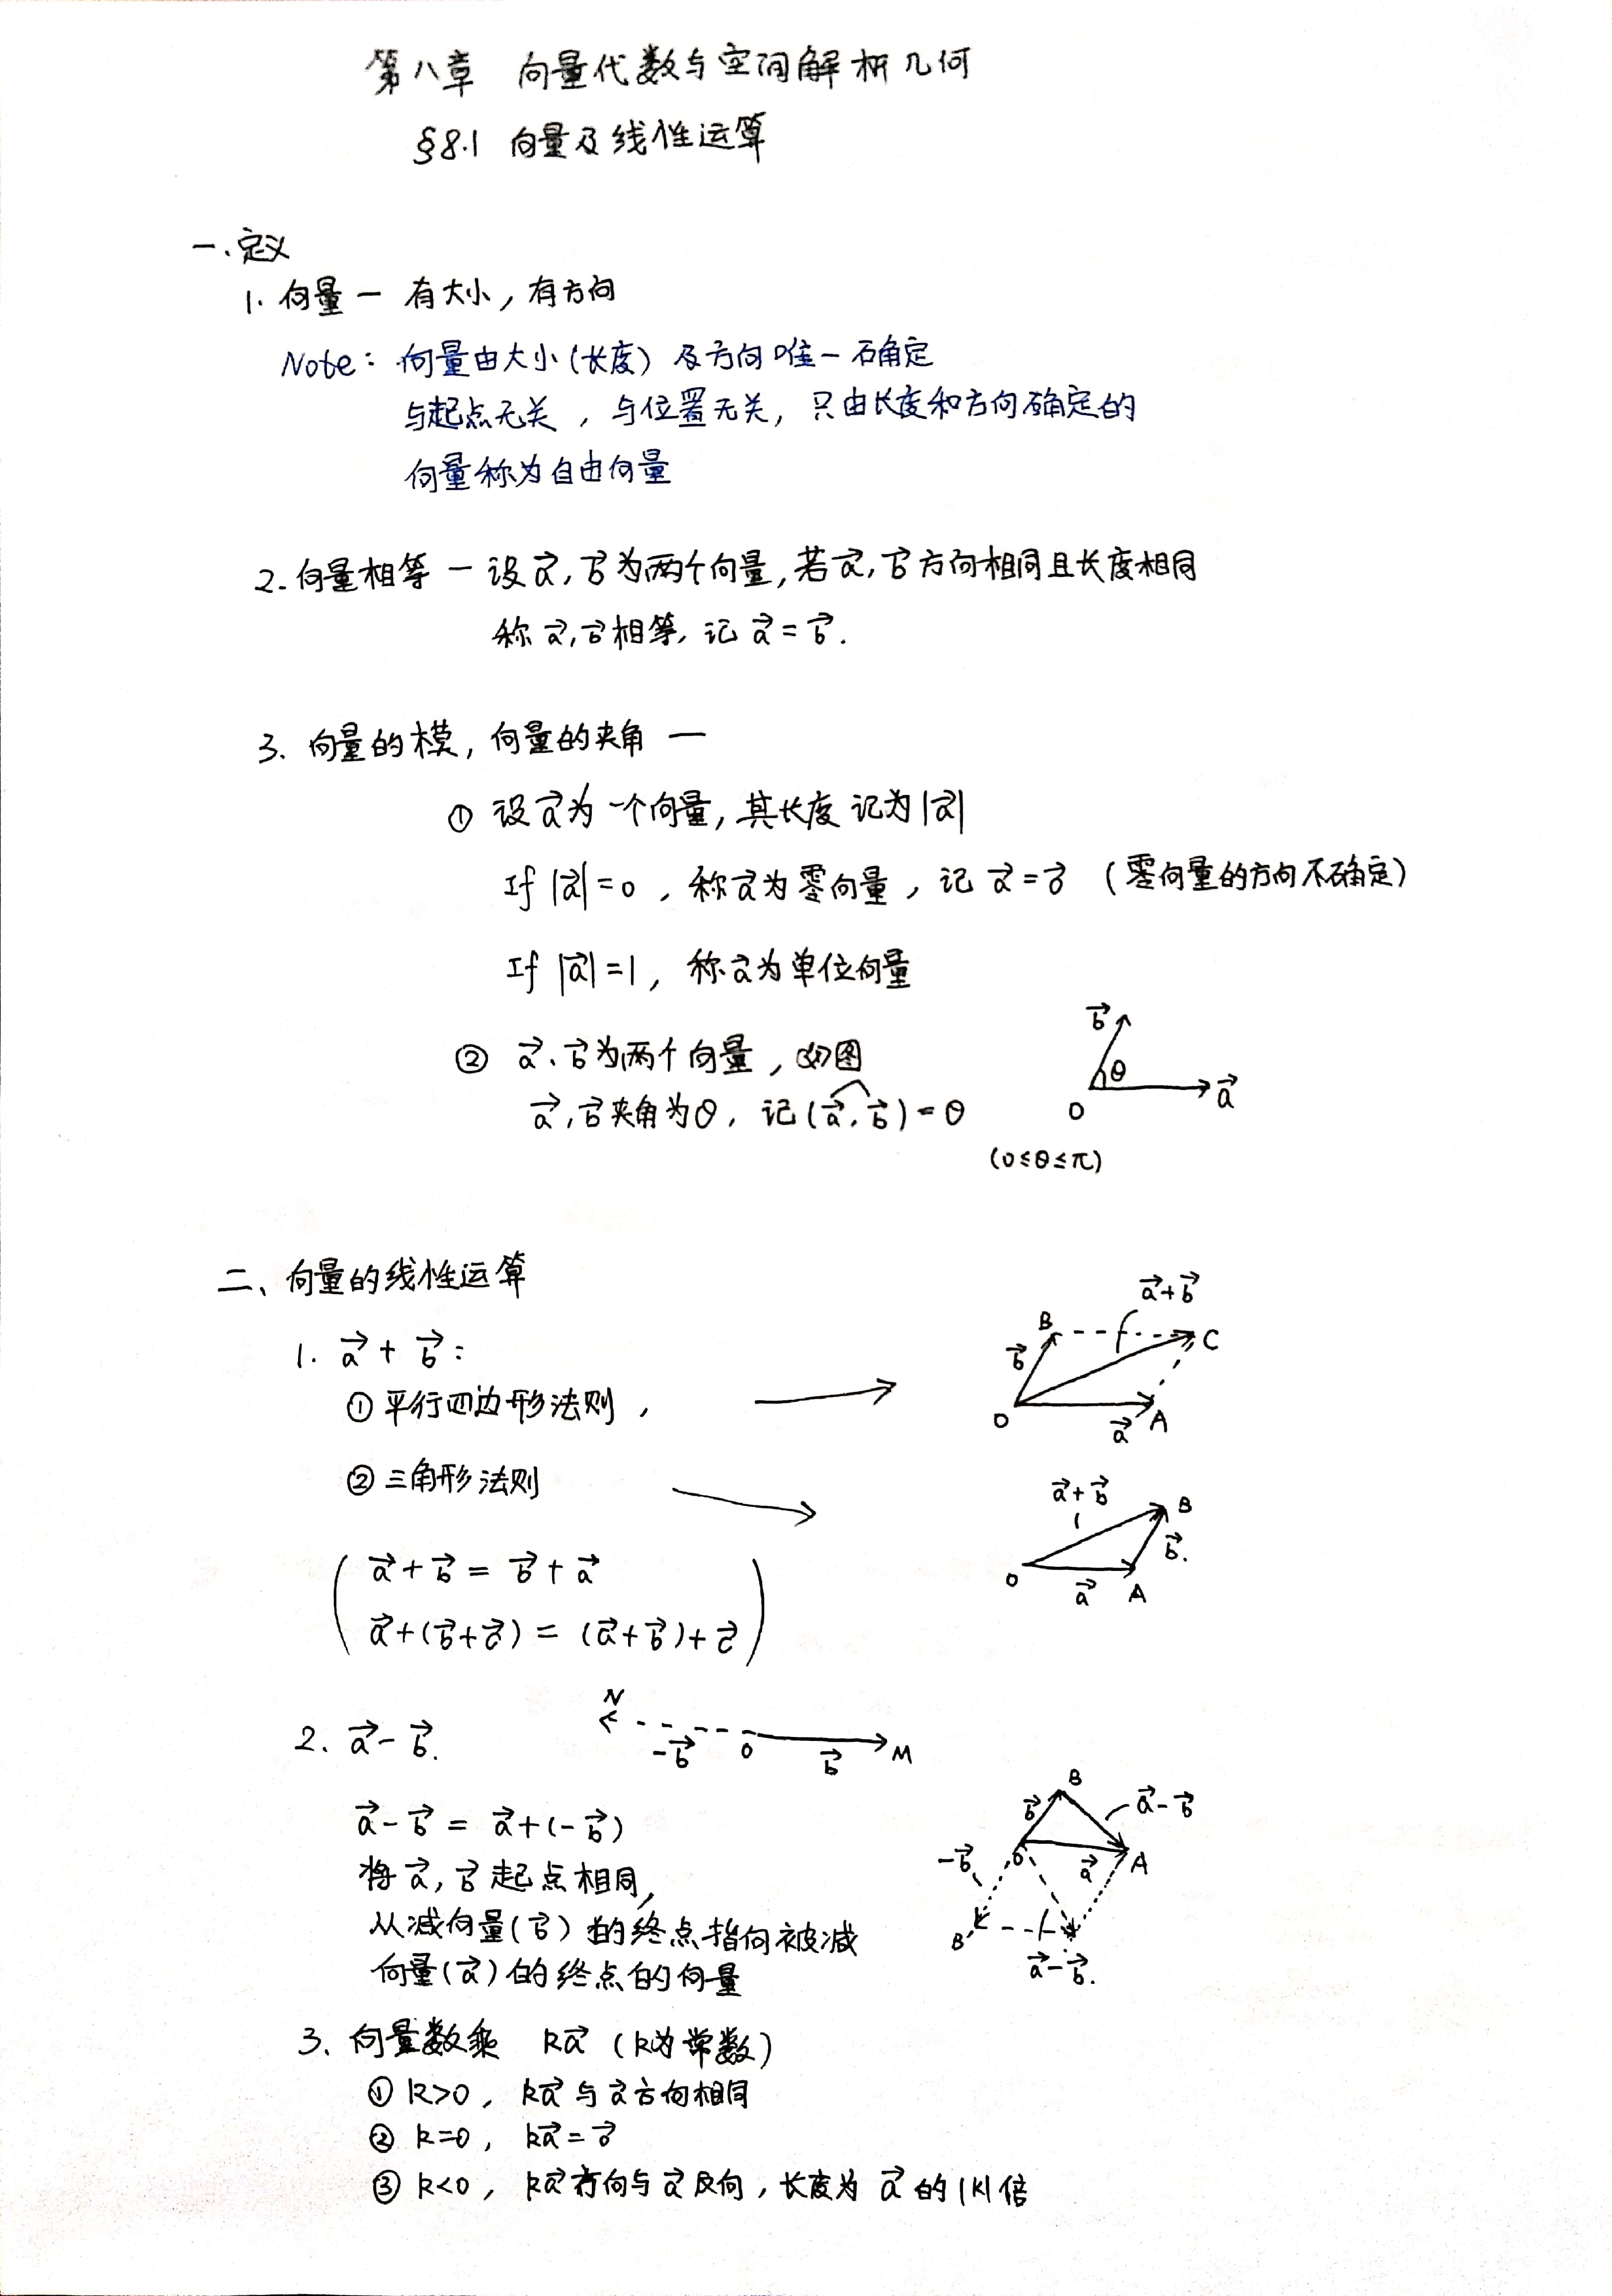 第八章 向量代数与空间解析几何
§8.1 向量及线性运算
一、定义
1. 向量 — 有大小, 有方向
Note: 向量由大小(长度) 及方向唯一确定
与起点无关, 与位置无关, 只由长度和方向确定的
向量称为自由向量
2. 向量相等 — 设 a⃗, b⃗ 为两个向量, 若 a⃗, b⃗ 方向相同且长度相同
称 a⃗, b⃗ 相等, 记 a⃗ = b⃗.
3. 向量的模, 向量的夹角 —
① 设 a⃗ 为一个向量, 其长度记为 |a⃗|
If |a⃗| = 0, 称 a⃗ 为零向量, 记 a⃗ = 0⃗ (零向量的方向不确定)
If |a⃗| = 1, 称 a⃗ 为单位向量
② a⃗、b⃗ 为两个向量, 如图
a⃗, b⃗ 夹角为 θ, 记 (a⃗, b⃗) = θ
(0 ≤ θ ≤ π)
b⃗
θ
O
a⃗
二、向量的线性运算
1. a⃗ + b⃗ :
① 平行四边形法则,
a⃗+b⃗
B
C
b⃗
O
a⃗
A
② 三角形法则
a⃗+b⃗
B
b⃗.
O
a⃗
A
a⃗ + b⃗ = b⃗ + a⃗
a⃗ + (b⃗ + c⃗) = (a⃗ + b⃗) + c⃗
2. a⃗ - b⃗.
N
-b⃗
O
b⃗
M
a⃗ - b⃗ = a⃗ + (-b⃗)
将 a⃗, b⃗ 起点相同,
从减向量(b⃗) 的终点指向被减
向量(a⃗) 的终点的向量
B
b⃗
a⃗-b⃗
-b⃗
O
a⃗
A
B'
a⃗-b⃗.
3. 向量数乘 ka⃗ (k为常数)
① k>0, ka⃗ 与 a⃗ 方向相同
② k=0, ka⃗ = 0⃗
③ k<0, ka⃗ 方向与 a⃗ 反向, 长度为 a⃗ 的 |k| 倍